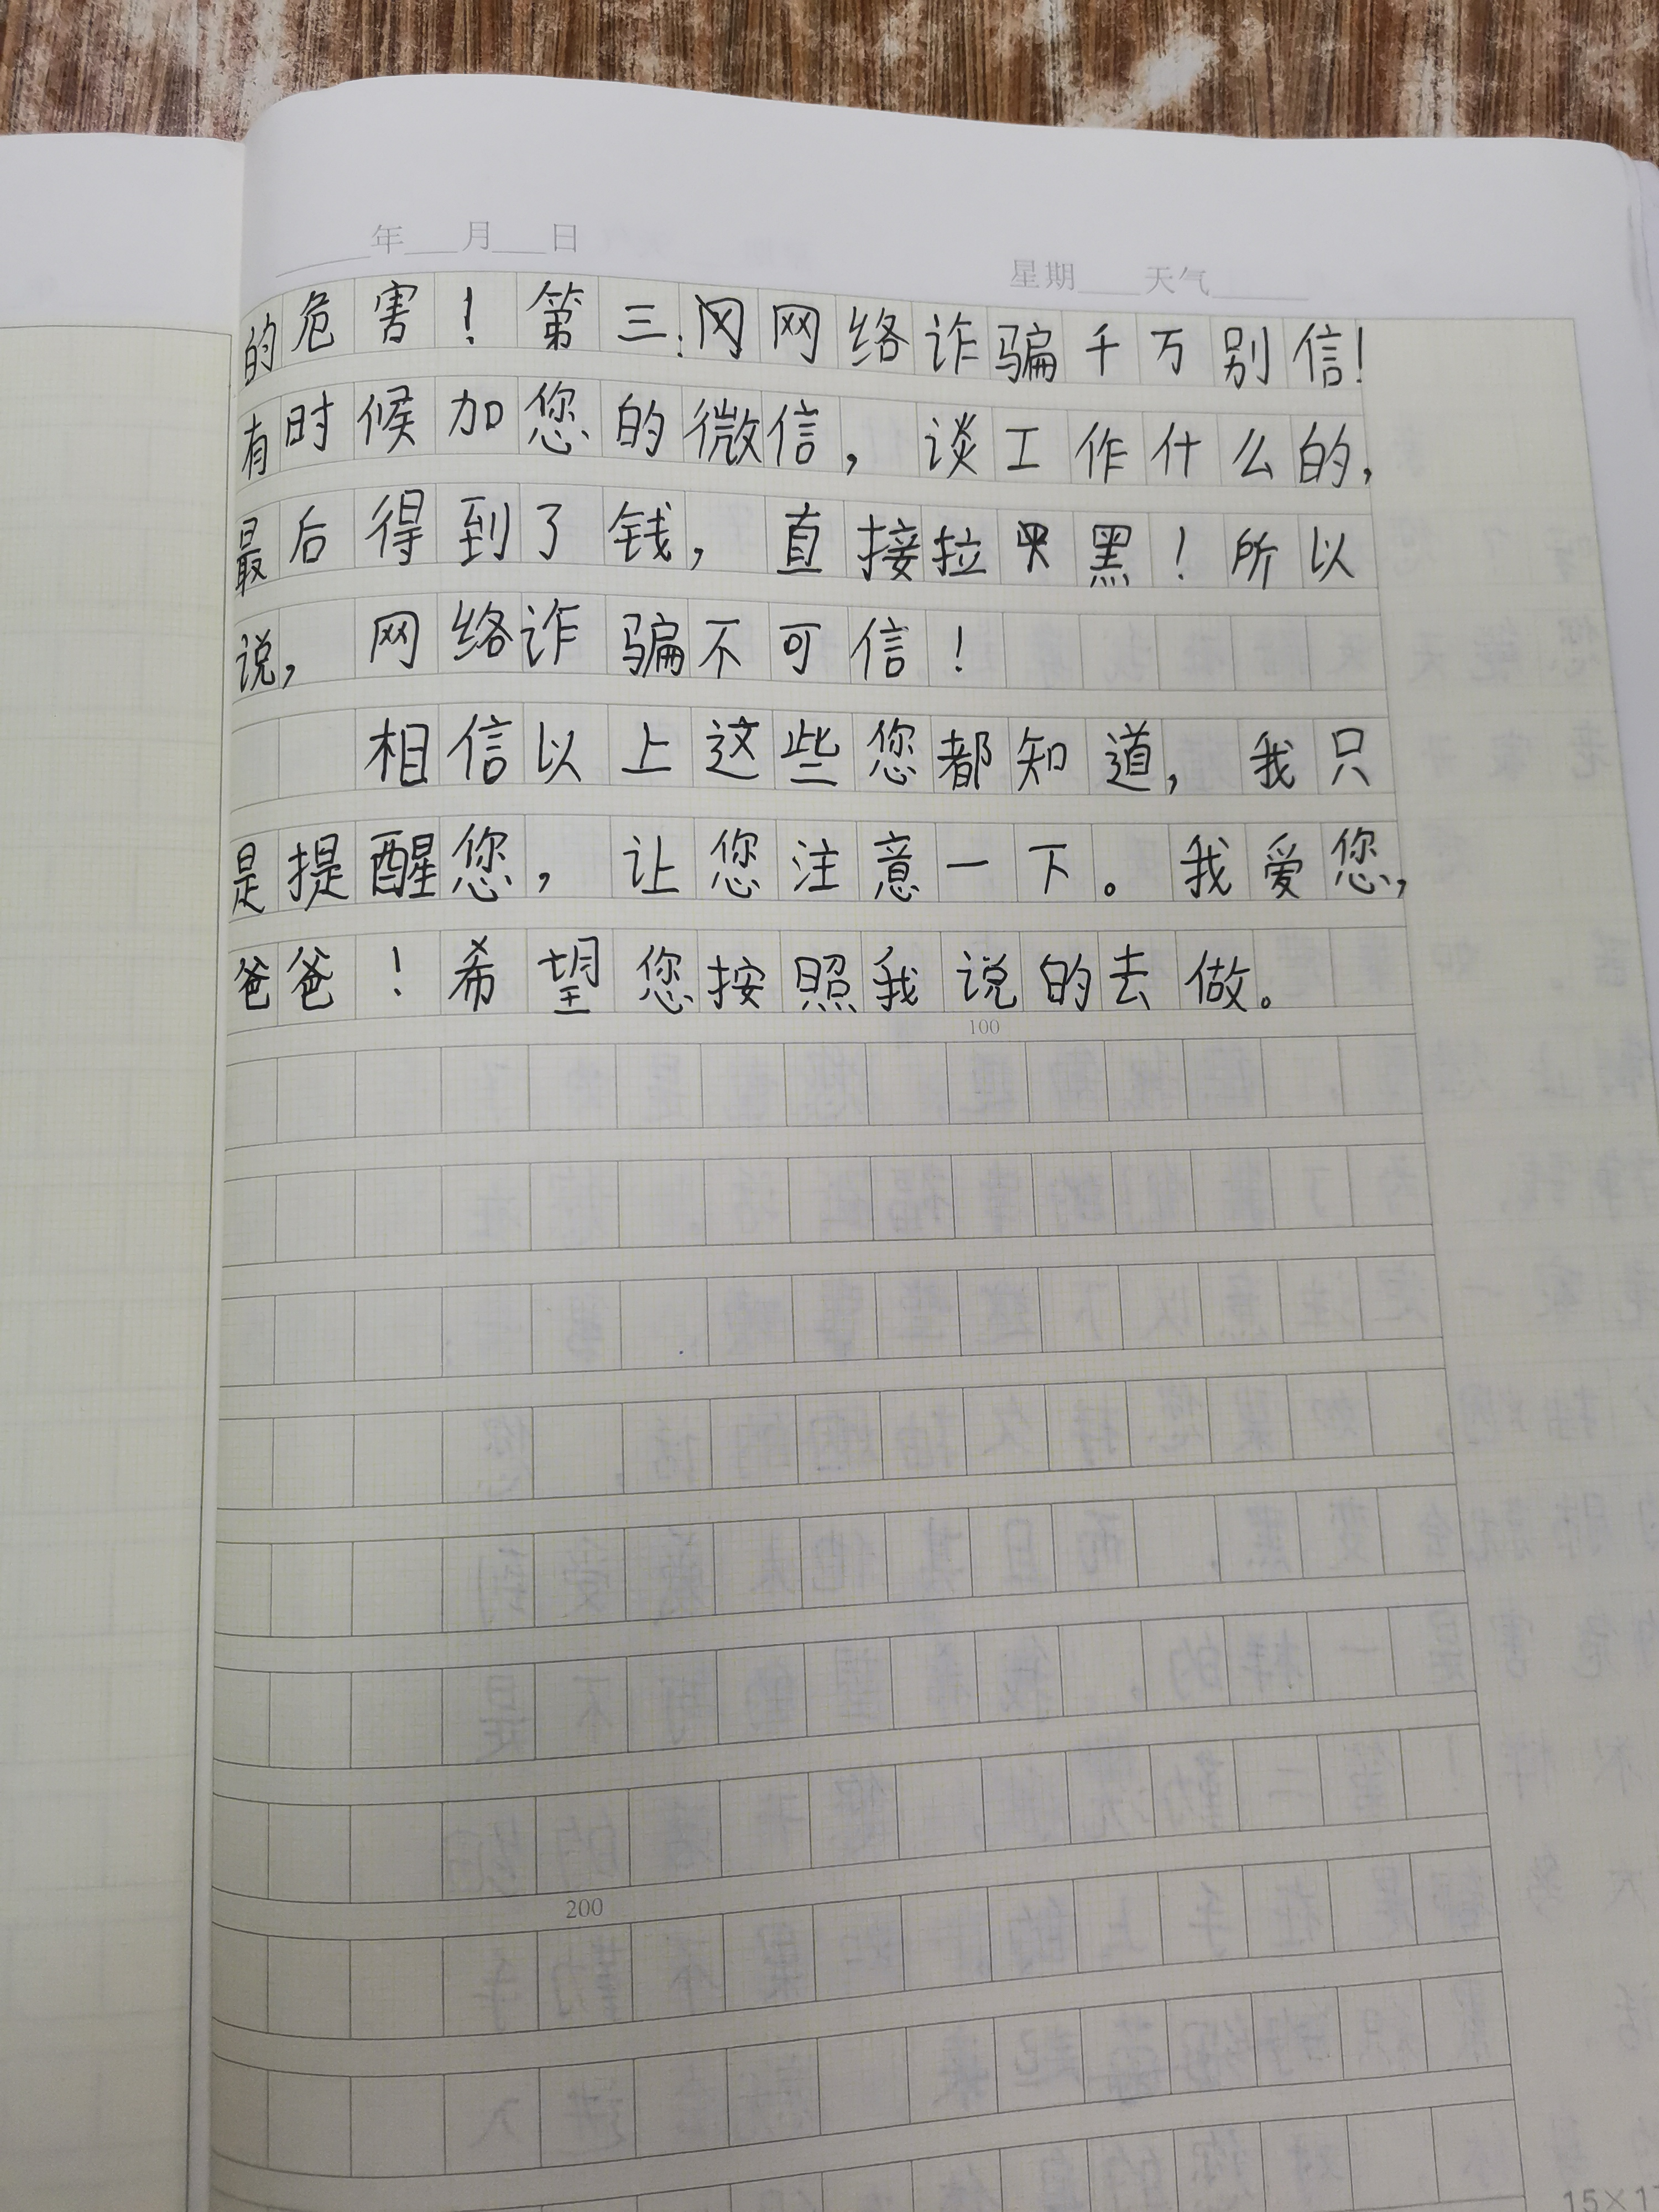 年 月 日
星期 天气
的危害！第三：网络诈骗千万别信！
有时候加您的微信，谈工作什么的，
最后得到了钱，直接拉黑！所以
说，网络诈骗不可信！
相信以上这些您都知道，我只
是提醒您，让您注意一下。我爱您，
爸爸！希望您按照我说的去做。
100
200